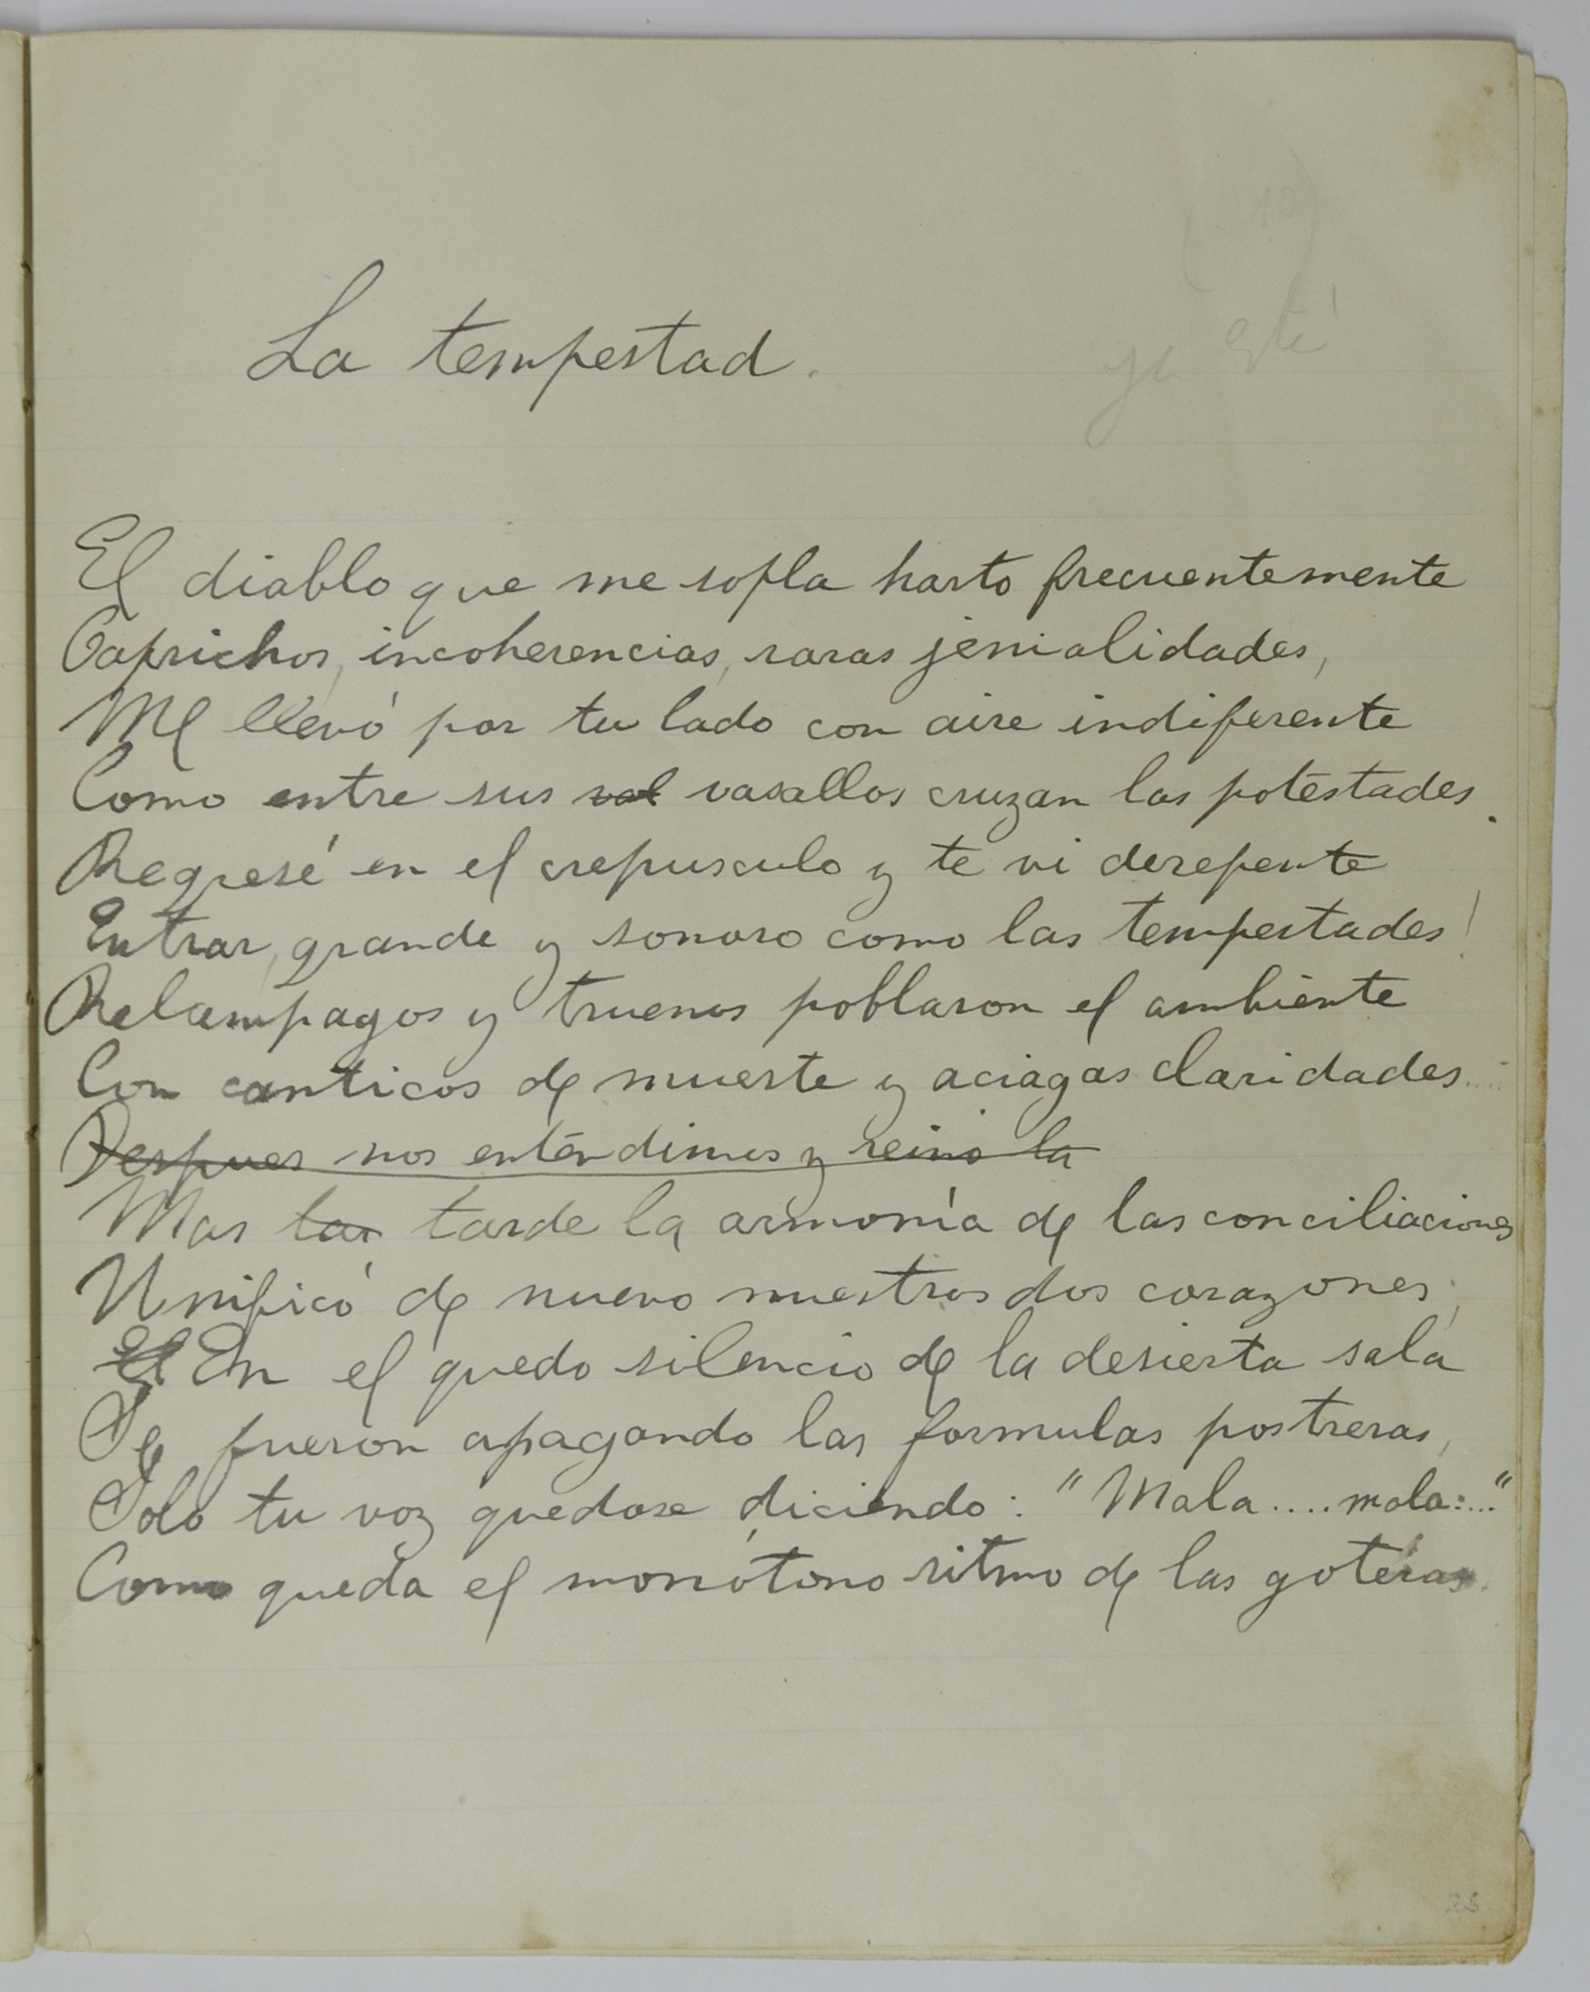 ya está
La tempestad.
El diablo que me sopla harto frecuentemente
Caprichos, incoherencias, raras jenialidades,
Me llevó por tu lado con aire indiferente
Como entre sus val vasallos cruzan las potestades.
Regresé en el crepusculo y te vi derepente
Entrar, grande y sonoro como las tempestades!
Relampagos y truenos poblaron el ambiente
Con canticos de muerte y aciagas claridades....
Despues nos entendimos y reinó la
Mas tar tarde la armonía de las conciliaciones
Unificó de nuevo nuestros dos corazones;
El En el quedo silencio de la desierta sala
Se fueron apagando las formulas postreras,
Solo tu voz quedose diciendo: "Mala.... mala...."
Como queda el monótono ritmo de las goteras.